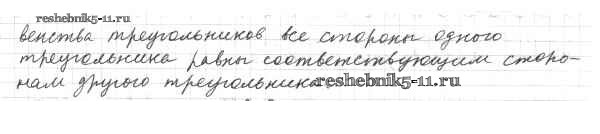 reshebnik5-11.ru
венства треугольников все стороны одного
треугольника равны соответствующим сторо-
нам другого треугольника.
reshebnik5-11.ru